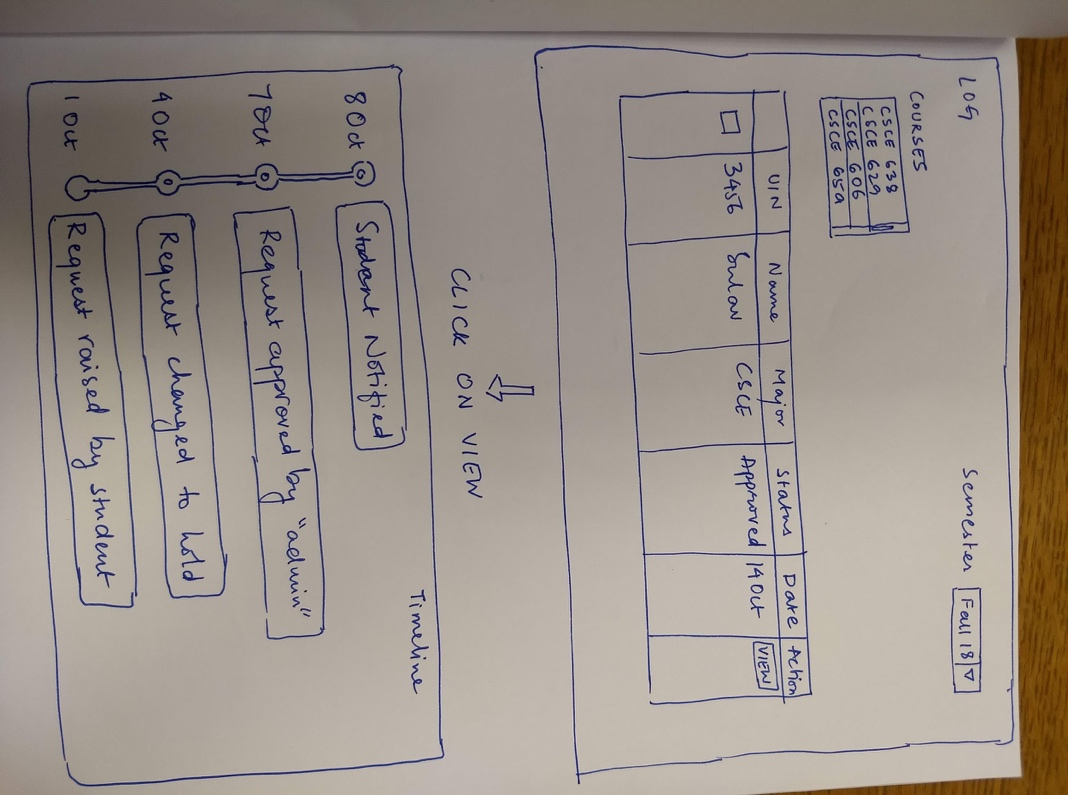 LOG
Semester Fall 18
COURSES
CSCE 638
CSCE 629
CSCE 606
CSCE 659
UIN Name Major Status Date Action
3456 CSCE Approved 14 Oct VIEW
CLICK ON VIEW
Timeline
8 Oct Student Notified
7 Oct Request approved by "admin"
4 Oct Request changed to hold
1 Oct Request raised by student